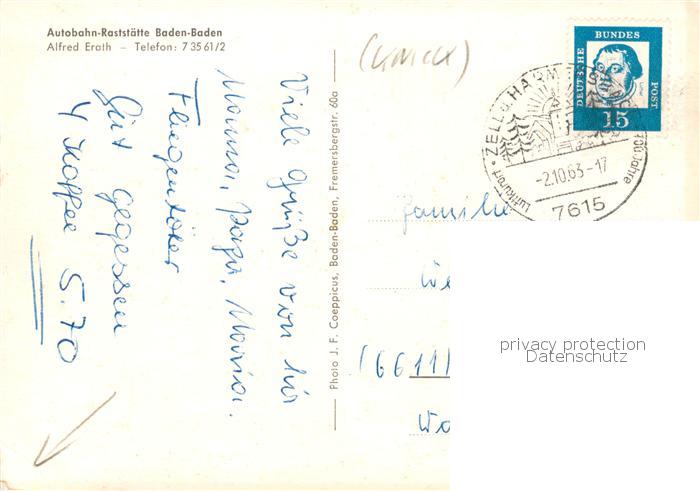 Autobahn-Raststätte Baden-Baden
Alfred Erath – Telefon: 7 35 61/2
Viele Grüße von hir
Mama, Papa,
Gut gegessen
4 Kaffee 5.70
Photo J. F. Coeppicus, Baden-Baden, Fremersbergstr. 60a
DEUTSCHE BUNDES POST
15
ZELL a. HARMERSBACH
700 Jahre
Luftkurort
-2.10.63-17
7615
Familie
We
(6611)
privacy protection
Datenschutz